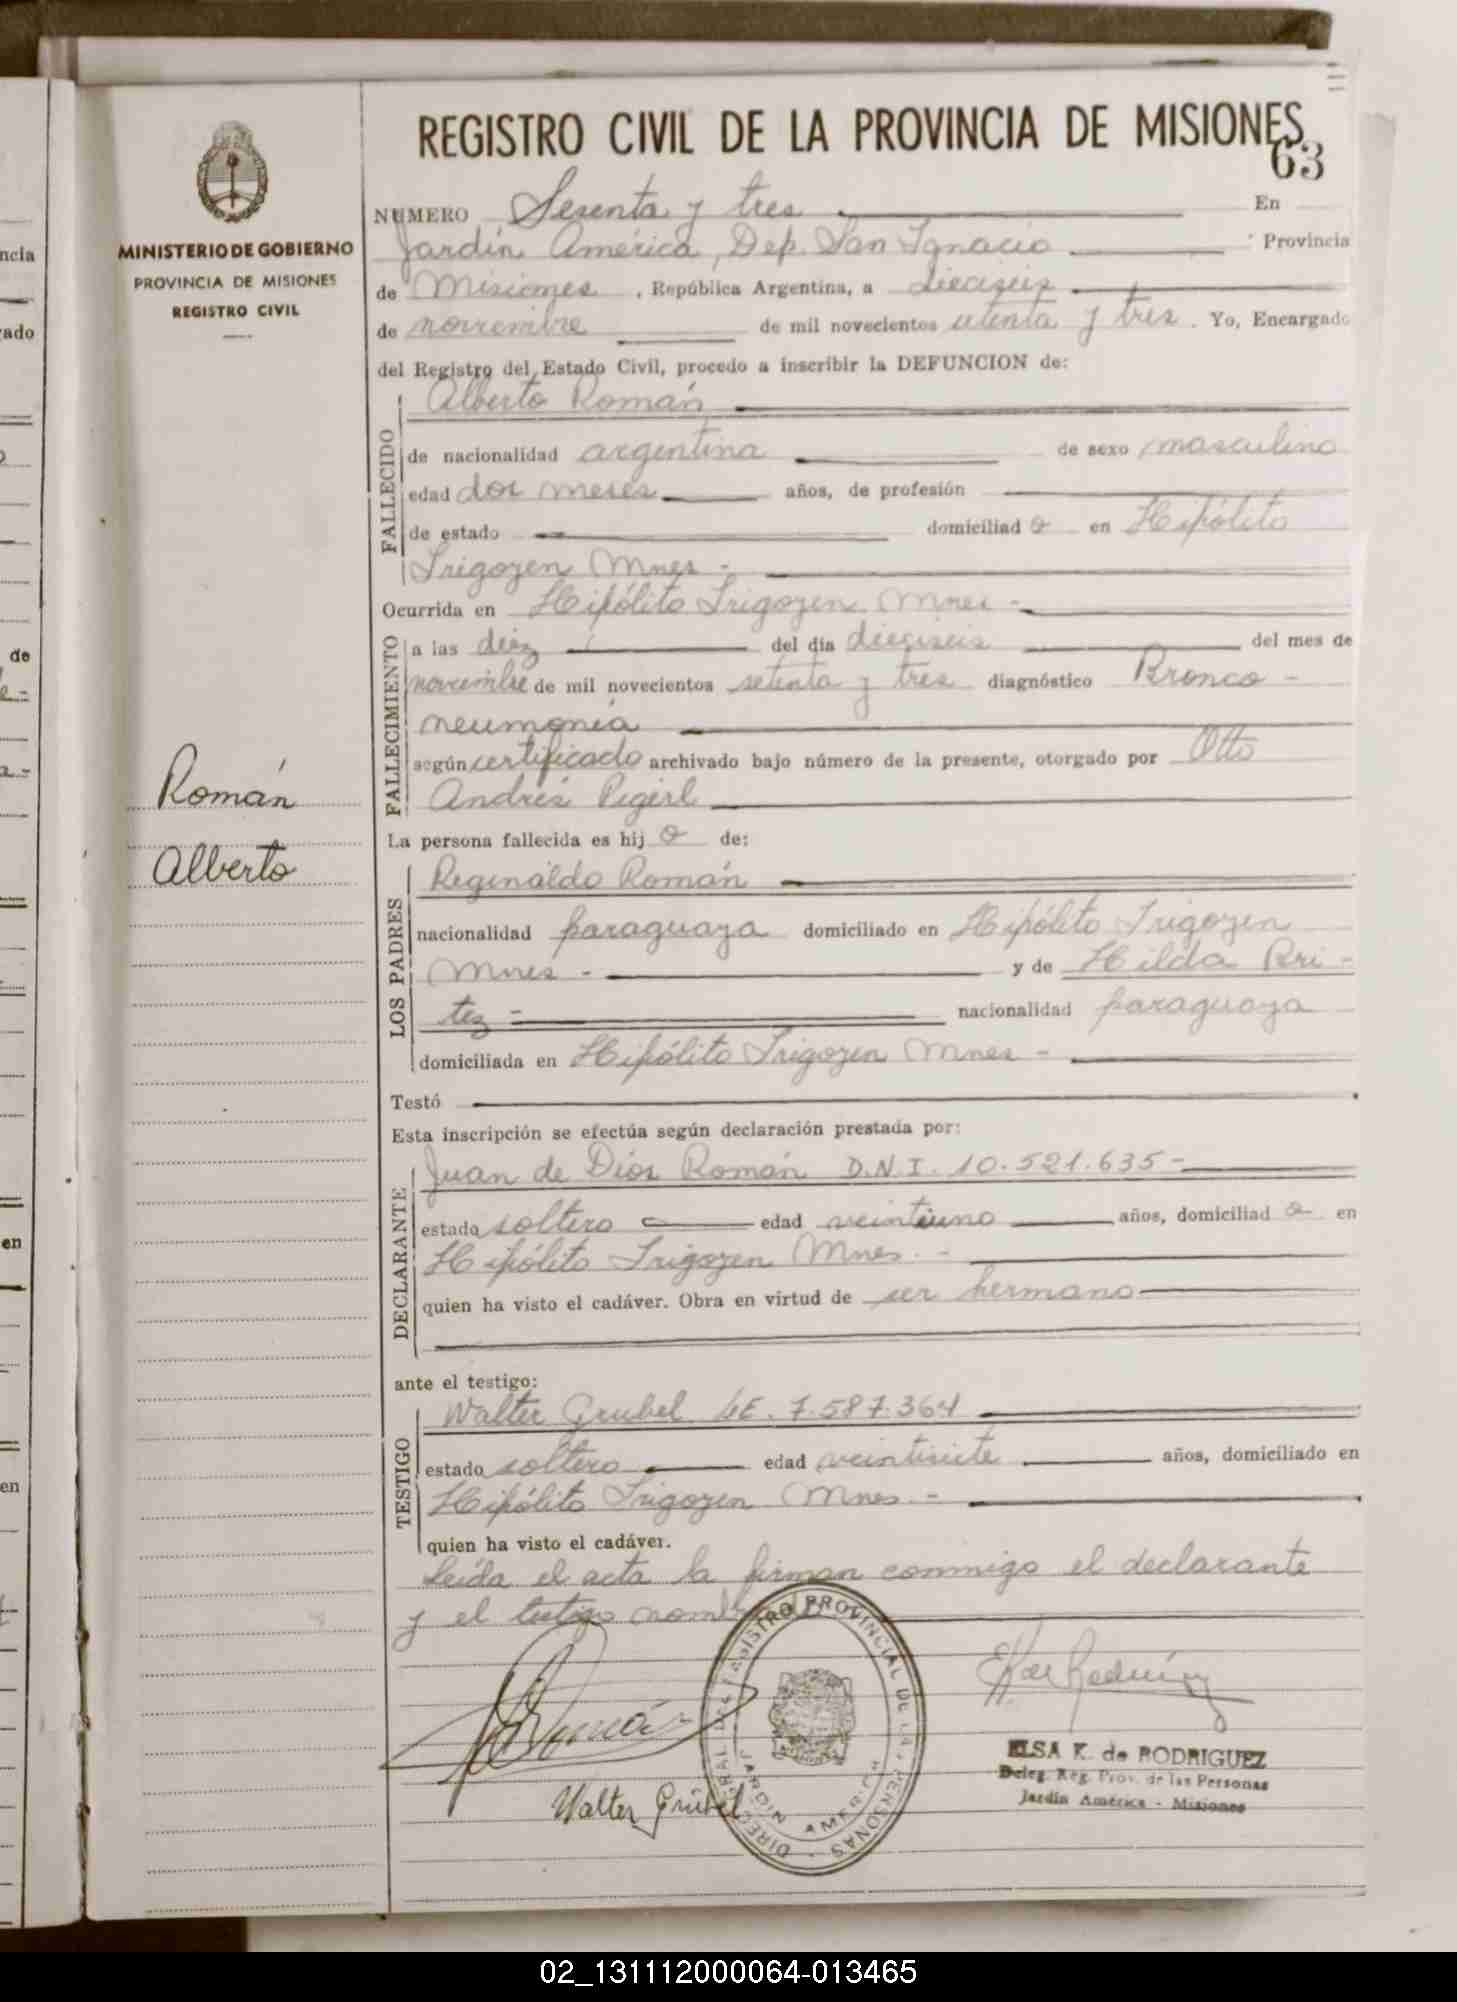 REGISTRO CIVIL DE LA PROVINCIA DE MISIONES
63
MINISTERIO DE GOBIERNO
PROVINCIA DE MISIONES
REGISTRO CIVIL
Román
Alberto
NUMERO Sesenta y tres En
Jardín América, Dep. San Ignacio Provincia
de Misiones, República Argentina, a dieciseis
de noviembre de mil novecientos setenta y tres. Yo, Encargado
del Registro del Estado Civil, procedo a inscribir la DEFUNCION de:
FALLECIDO
Alberto Román
de nacionalidad argentina de sexo masculino
edad dos meses años, de profesión
de estado domiciliad o en Hipólito
Irigoyen Mnes -
Ocurrida en Hipólito Irigoyen Mnes -
FALLECIMIENTO
a las diez del día dieciseis del mes de
noviembre de mil novecientos setenta y tres diagnóstico Bronco -
neumonía
según certificado archivado bajo número de la presente, otorgado por Otto
Andrés Pigerl
La persona fallecida es hij o de:
LOS PADRES
Reginaldo Román
nacionalidad paraguaya domiciliado en Hipólito Irigoyen
Mnes - y de Hilda Bri -
tez -
nacionalidad paraguaya
domiciliada en Hipólito Irigoyen Mnes -
Testó
Esta inscripción se efectúa según declaración prestada por:
DECLARANTE
Juan de Dios Román D.N.I. 10.521.635 -
estado soltero edad veintiuno años, domiciliad o en
Hipólito Irigoyen Mnes. -
quien ha visto el cadáver. Obra en virtud de ser hermano
ante el testigo:
TESTIGO
Walter Grubel LE. 7.587.364
estado soltero edad veintisiete años, domiciliado en
Hipólito Irigoyen Mnes. -
quien ha visto el cadáver.
Leída el acta la firman conmigo el declarante
y el testigo
DIREC. GRAL DEL REGISTRO PROVINCIAL DE LAS PERSONAS
JARDIN AMERICA
Walter Grübel
ELSA K. de RODRIGUEZ
Deleg. Reg. Prov. de las Personas
Jardín América - Misiones
02_131112000064-013465